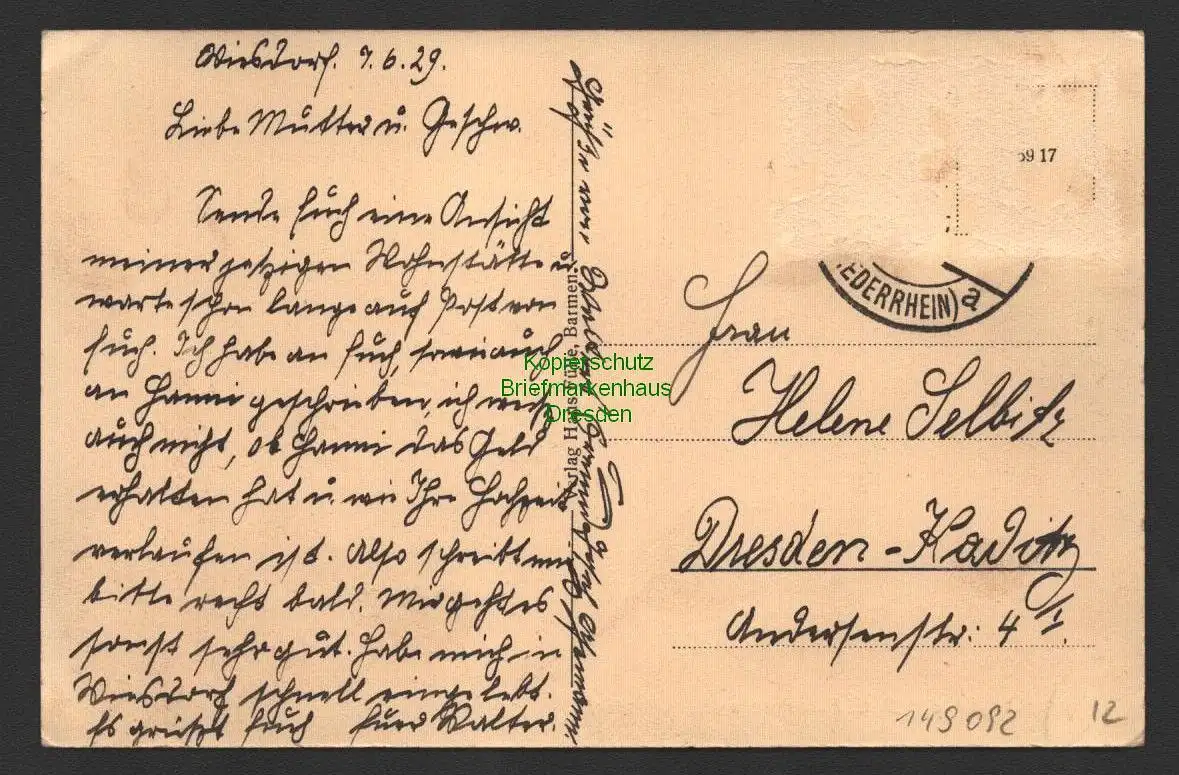 Wiesdorf. 7.6.29.
Liebe Mutter u. Geschw.
Sende Euch eine Ansicht
meiner jetzigen Wohnstätte u.
warte schon lange auf Post von
Euch. Ich habe an Euch, sowie auch
an Hanni geschrieben, ich weiß
auch nicht, ob Hanni das Geld
erhalten hat u. wie Ihre Hochzeit
verlaufen ist. Also schreibt mir
bitte recht bald. Mir geht es
sonst sehr gut. Habe mich in
Wiesdorf schnell eingelebt.
Es grüßt Euch Euer Walter.
Grüße
Verlag Barmen.
59 17
EDERRHEIN) a
Frau
Helene Selbitz
Dresden-Kaditz
Andersenstr: 4 I.
Kopierschutz
Briefmarkenhaus
Dresden
149 092
12